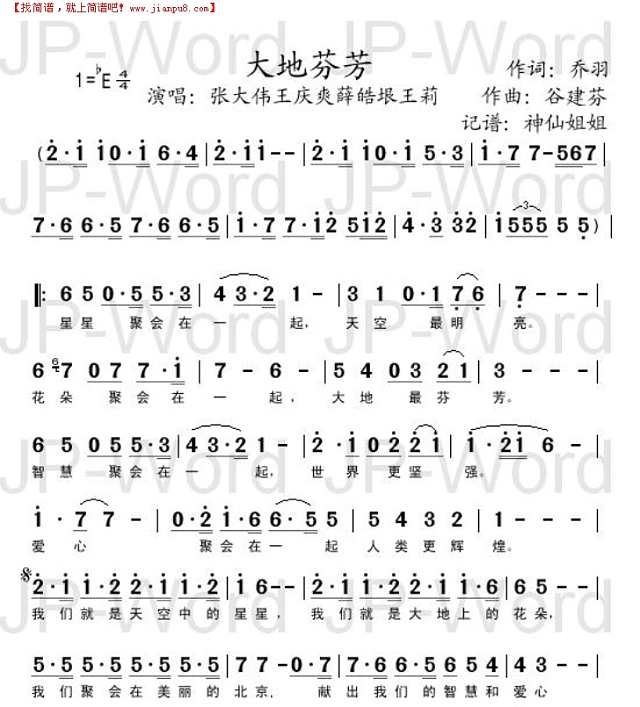 【找简谱，就上简谱吧！www.jianpu8.com】
大地芬芳
1=♭E 4/4
作词：乔羽
演唱：张大伟王庆爽薛皓垠王莉
作曲：谷建芬
记谱：神仙姐姐
JP-Word JP-Word
(2·1 10·1 6·4|2·1 1--|2·1 10·1 5·3|1·7 7-567|
7·6 6·5 7·6 6·5|1·7 7·12 512|4·3 32|1555 5 5)|
‖: 6 5 0·5 5·3|4 3·2 1 -|3 1 0·1 7·6|7---|
星星 聚会在一 起，天空 最明 亮。
6 67 07 7·1|7 - 6 -|5 4 03 21|3---|
花朵 聚会在 一 起，大地 最芬 芳。
6 5 05 5·3|4 3·2 1 -|2·1 02 21|1·21 6 -|
智慧 聚会在一 起，世界 更坚 强。
1·7 7 -|0·2 1·6 6·5 5|5 4 3 2|1---|
爱 心 聚会在一 起 人类更辉 煌。
2·1 1·2 2·1 1·2|1 6--|2·1 1·2 2·1 1·2|6 5--|
我们就是天空中的星星，我们就是大地上的花朵，
5·5 5·5 5·5 5·5|8 7-0·7|6·7 6·7 6 5 4|4 3--|
我们聚会在美丽的北京，献出我们的智慧和爱心